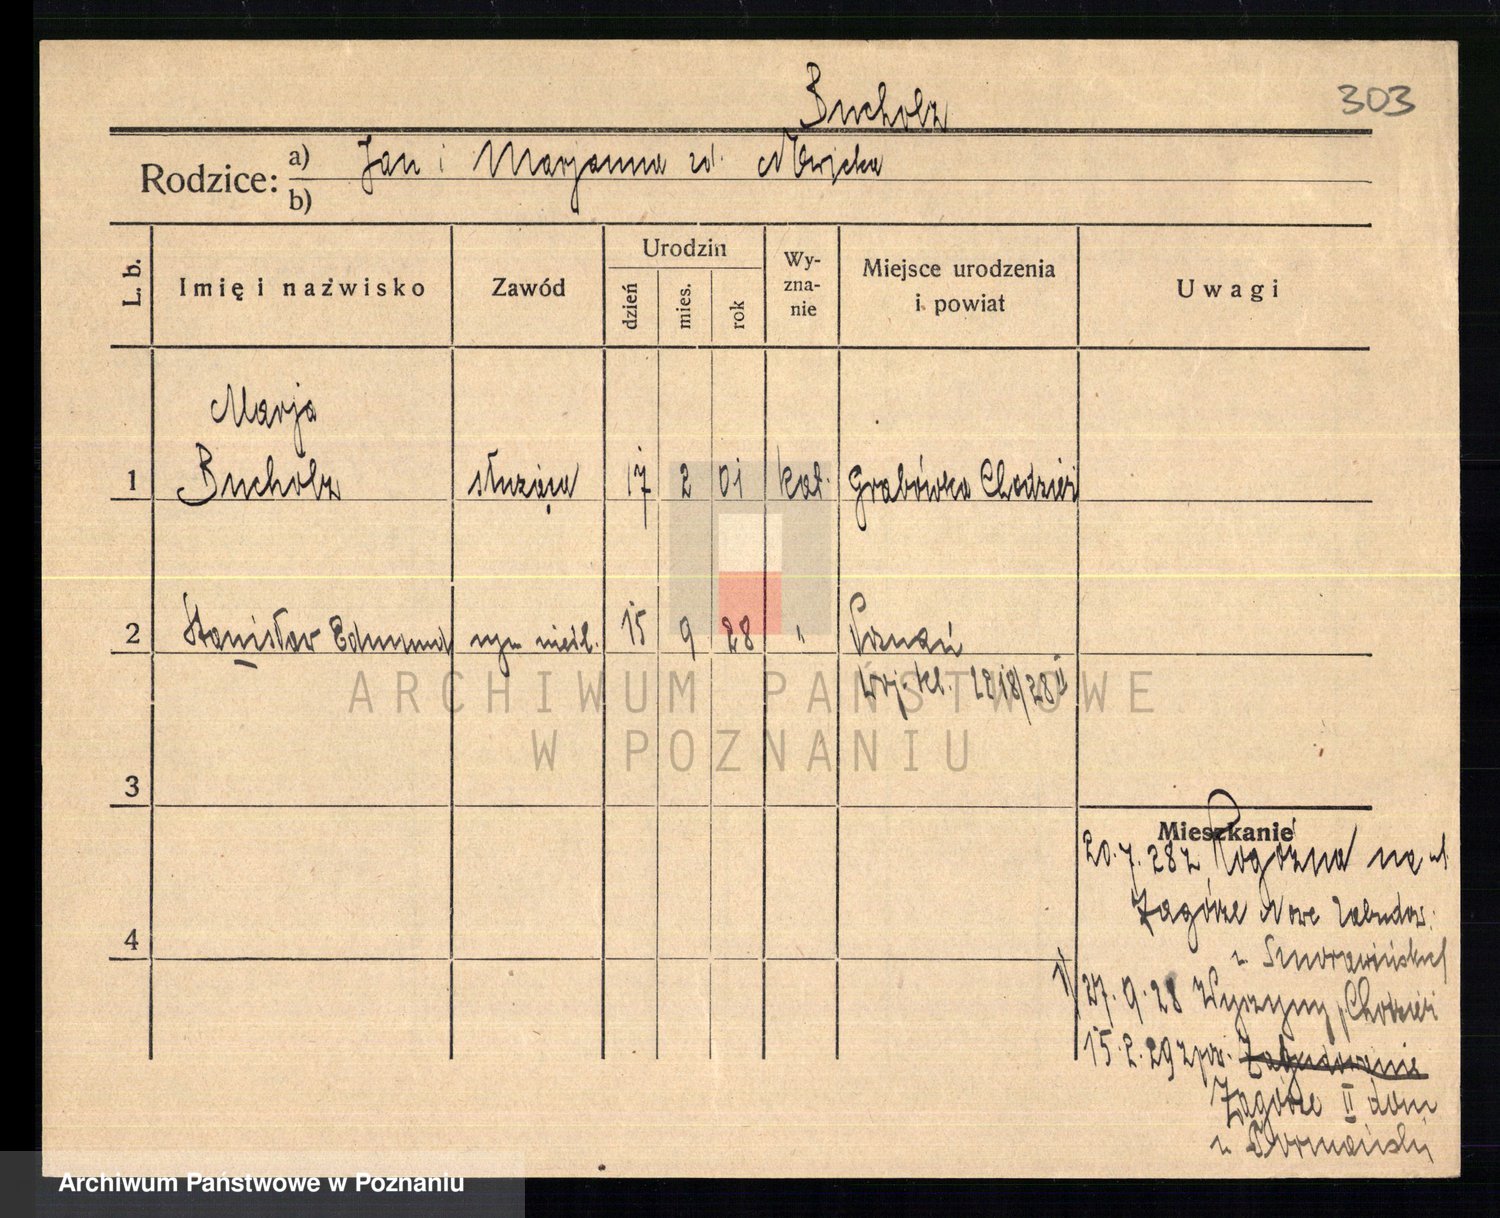 Bucholz
303
Rodzice:
a) Jan i Marjanna zd. Wojcka
b)
L. b.
Imię i nazwisko
Zawód
Urodzin
dzień
mies.
rok
Wy-
zna-
nie
Miejsce urodzenia
i powiat
Uwagi
Marja
1 Bucholz służąca 17 2 01 kat. Grabówka Chodzież
2 Stanisław Edmund syn nieśl. 15 9 28 " Poznań
2218/28 II
ARCHIWUM PAŃSTWOWE
W POZNANIU
3
Mieszkanie
20.7.28 z Rogoźna na ul.
Zagórze Nowe Zabudow.
4
u
1/ 27.9.28 Wyszyny p/Chodzież
15.2.29 z pow. Zabudowanie
Zagórze II dom
u
Archiwum Państwowe w Poznaniu